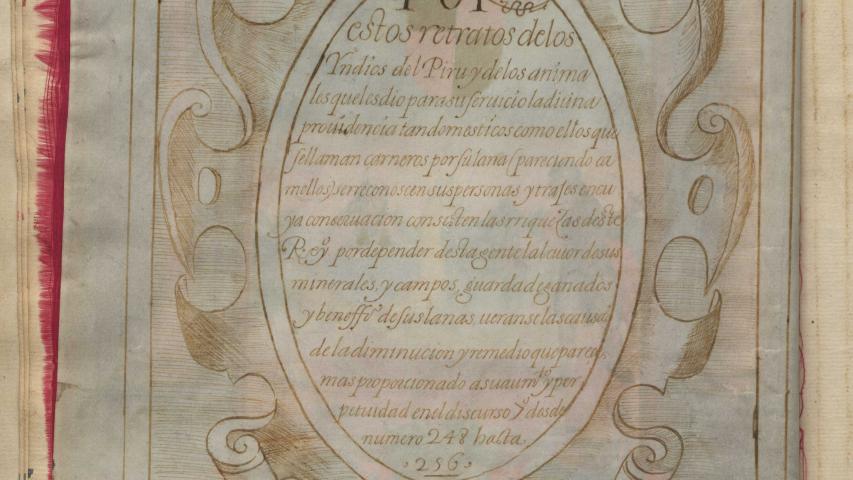 POR
estos retratos delos
Yndios del Piru y delos anima
les quelesdio parasu seruicio ladiuina
prouidencia tan domesticos como ellos que
sellaman carneros por su lana (pareciendo ca
mellos) se rreconoscen sus personas y trajes en cu
ya conseruacion consisten las rriqueças deste
R.º y por depender desta gente la lauor de sus
minerales, y campos, guarda de ganados
y beneffº de sus lanas, ueranse las causas
de la diminucion y remedio que parece
mas proporcionado a su aumtº y per
petuidad en el discurso 7º desde
numero 248 hasta
·256·